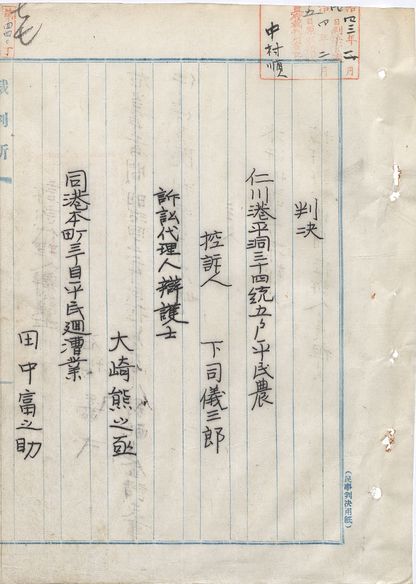 判決
仁川港平洞三十四統五戸平民農
控訴人　下司儀三郎
訴訟代理人辯護士
大崎熊之亟
同港本町三丁目平民廻漕業
田中富之助
中村順
七七
裁判所
(民事判決用紙)